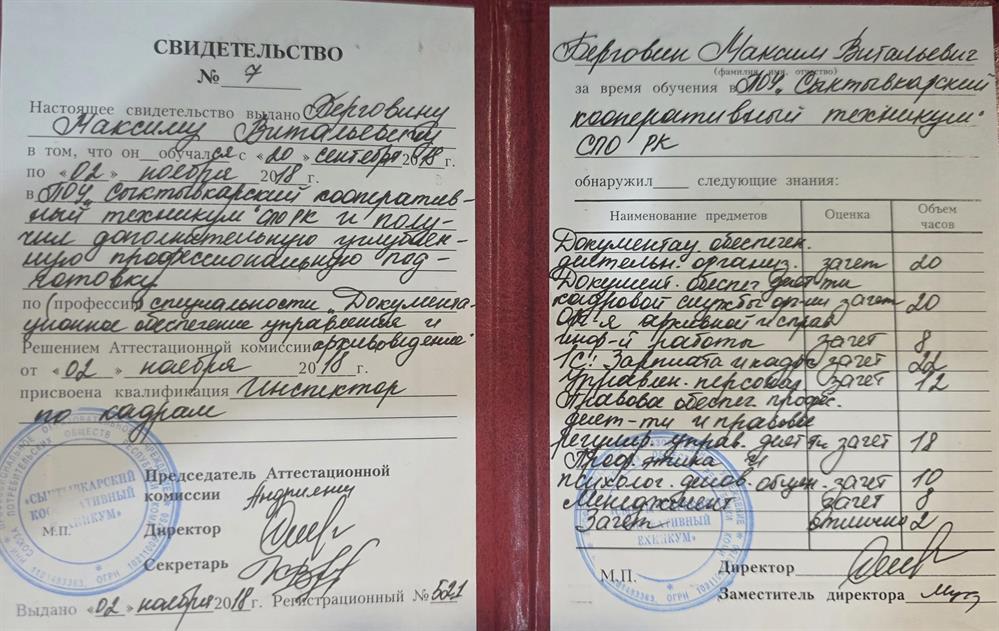 СВИДЕТЕЛЬСТВО
№ 7
Настоящее свидетельство выдано Берговину
Максиму Витальевичу
в том, что он обучался с «20» сентября 2018 г.
по «02» ноября 2018 г.
в ПОУ „Сыктывкарский кооператив-
ный техникум" СПО РК и полу-
чил дополнительную углублен-
ную профессиональную под-
готовку
по (профессии) специальности „Документа-
ционное обеспечение управления и
архивоведение"
Решением Аттестационной комиссии
от «02» ноября 2018 г.
присвоена квалификация Инспектор
по кадрам
Председатель Аттестационной
комиссии
М.П.
Директор
Секретарь
Выдано «02» ноября 2018 г. Регистрационный № 521
«СЫКТЫВКАРСКИЙ
КООПЕРАТИВНЫЙ
ТЕХНИКУМ»
Берговин Максим Витальевич
(фамилия, имя, отчество)
за время обучения в ПОУ „Сыктывкарский
кооперативный техникум"
СПО РК
обнаружил следующие знания:
Наименование предметов Оценка Объем часов
Документац. обеспечен.
деятельн. организ. зачет 20
Документ. обеспеч деят-ти
кадровой службы орг-ии зачет 20
Орг-я архивной и справ
инф-й работы зачет 8
1С: Зарплата и кадры зачет 22
Управлен. персонал. зачет 12
Правовое обеспеч. профес.
деят-ти и правовое
регулир. управ. деят зачет 18
Проф. этика и
психолог. делов. общен. зачет 10
Менеджмент зачет 8
Зачет отлично 2
М.П.
Директор
Заместитель директора